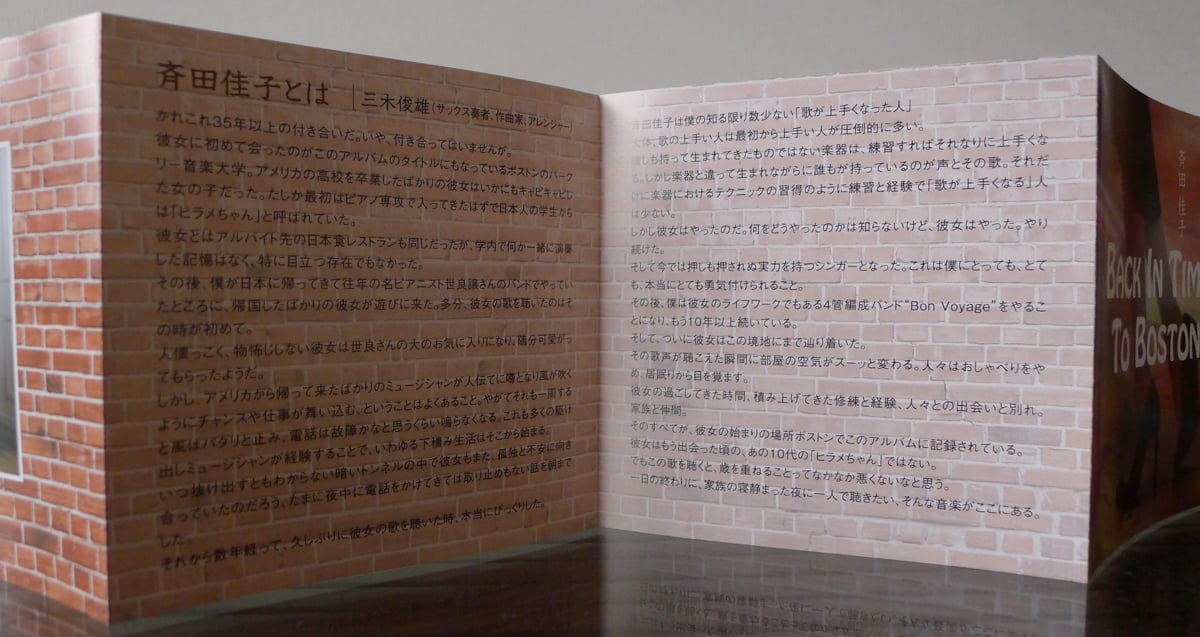 斉田佳子とは｜三木俊雄(サックス奏者、作曲家、アレンジャー)
かれこれ35年以上の付き合いだ。いや、付き合ってはいませんが。
彼女に初めて会ったのがこのアルバムのタイトルにもなっているボストンのバーク
リー音楽大学。アメリカの高校を卒業したばかりの彼女はいかにもキャピキャピし
た女の子だった。たしか最初はピアノ専攻で入ってきたはずで日本人の学生から
は「ヒラメちゃん」と呼ばれていた。
彼女とはアルバイト先の日本食レストランも同じだったが、学内で何か一緒に演奏
した記憶はなく、特に目立つ存在でもなかった。
その後、僕が日本に帰ってきて往年の名ピアニスト世良譲さんのバンドでやってい
たところに、帰国したばかりの彼女が遊びに来た。多分、彼女の歌を聴いたのはそ
の時が初めて。
人懐っこく、物怖じしない彼女は世良さんの大のお気に入りになり、随分可愛がっ
てもらったようだ。
しかし、アメリカから帰って来たばかりのミュージシャンが人伝てに噂となり風が吹く
ようにチャンスや仕事が舞い込む、ということはよくあること。やがてそれも一周する
と風はパタリと止み、電話は故障かなと思うくらい鳴らなくなる。これも多くの駆け
出しミュージシャンが経験することで、いわゆる下積み生活はそこから始まる。
いつ抜け出すともわからない暗いトンネルの中で彼女もまた、孤独と不安に向き
合っていたのだろう、たまに夜中に電話をかけてきては取り止めもない話を朝まで
した。
それから数年経って、久しぶりに彼女の歌を聴いた時、本当にびっくりした。
斉田佳子は僕の知る限り数少ない「歌が上手くなった人」
大体、歌の上手い人は最初から上手い人が圧倒的に多い。
誰しも持って生まれてきたものではない楽器は、練習すればそれなりに上手くな
る。しかし楽器と違って生まれながらに誰もが持っているのが声とその歌。それだ
けに楽器におけるテクニックの習得のように練習と経験で「歌が上手くなる」人
は少ない。
しかし彼女はやったのだ。何をどうやったのかは知らないけど、彼女はやった。やり
続けた。
そして今では押しも押されぬ実力を持つシンガーとなった。これは僕にとっても、とて
も、本当にとても勇気付けられること。
その後、僕は彼女のライフワークでもある4管編成バンド“Bon Voyage”をやるこ
とになり、もう10年以上続いている。
そして、ついに彼女はこの境地にまで辿り着いた。
その歌声が聴こえた瞬間に部屋の空気がスーッと変わる。人々はおしゃべりをや
め、居眠りから目を覚ます。
彼女の過ごしてきた時間、積み上げてきた修練と経験、人々との出会いと別れ。
家族と仲間。
そのすべてが、彼女の始まりの場所ボストンでこのアルバムに記録されている。
彼女はもう出会った頃の、あの10代の「ヒラメちゃん」ではない。
でもこの歌を聴くと、歳を重ねることってなかなか悪くないなと思う。
一日の終わりに、家族の寝静まった夜に一人で聴きたい、そんな音楽がここにある。
斉田佳子
BACK IN TIM
TO BOSTON